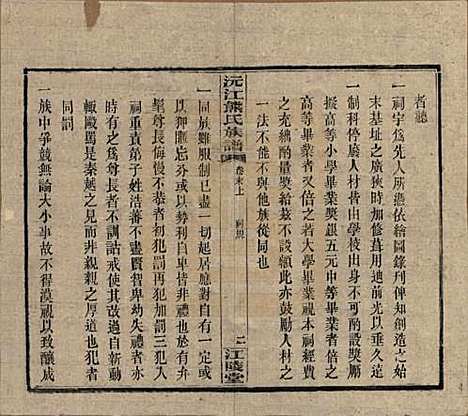 者聽
一祠宇爲先人所憑依繪圖錄刋俾知創造之始
末基址之廣狹時加修葺用廸前光以垂久遠
一制科停廢人材皆由學校出身不可不酌設獎勵
擬高等小學畢業獎銀五元中等畢業者倍之
高等畢業者又倍之若大學畢業視本祠經費
之充絀酌量獎給茲不設額此亦鼓勵人材之
一法不能與他族從同也
沅江熊氏族譜
卷末上
祠規
二
江陵堂
一同族雖服制已盡一切起居應對自有一定或
以狎匪忘分或以勢利自高有一於此非所以
聖尊長侮慢不恭者初犯罰再犯加罰三犯其
祠重責弟子姓浩蕃不盡賢智卑幼失禮者亦
時有之爲尊長者不訓詁戒使其改過自新動
輒毆罵是秦越之見而非親親之厚道也犯者
同罰
一族中爭競無論大小事故不得漠視以致釀成